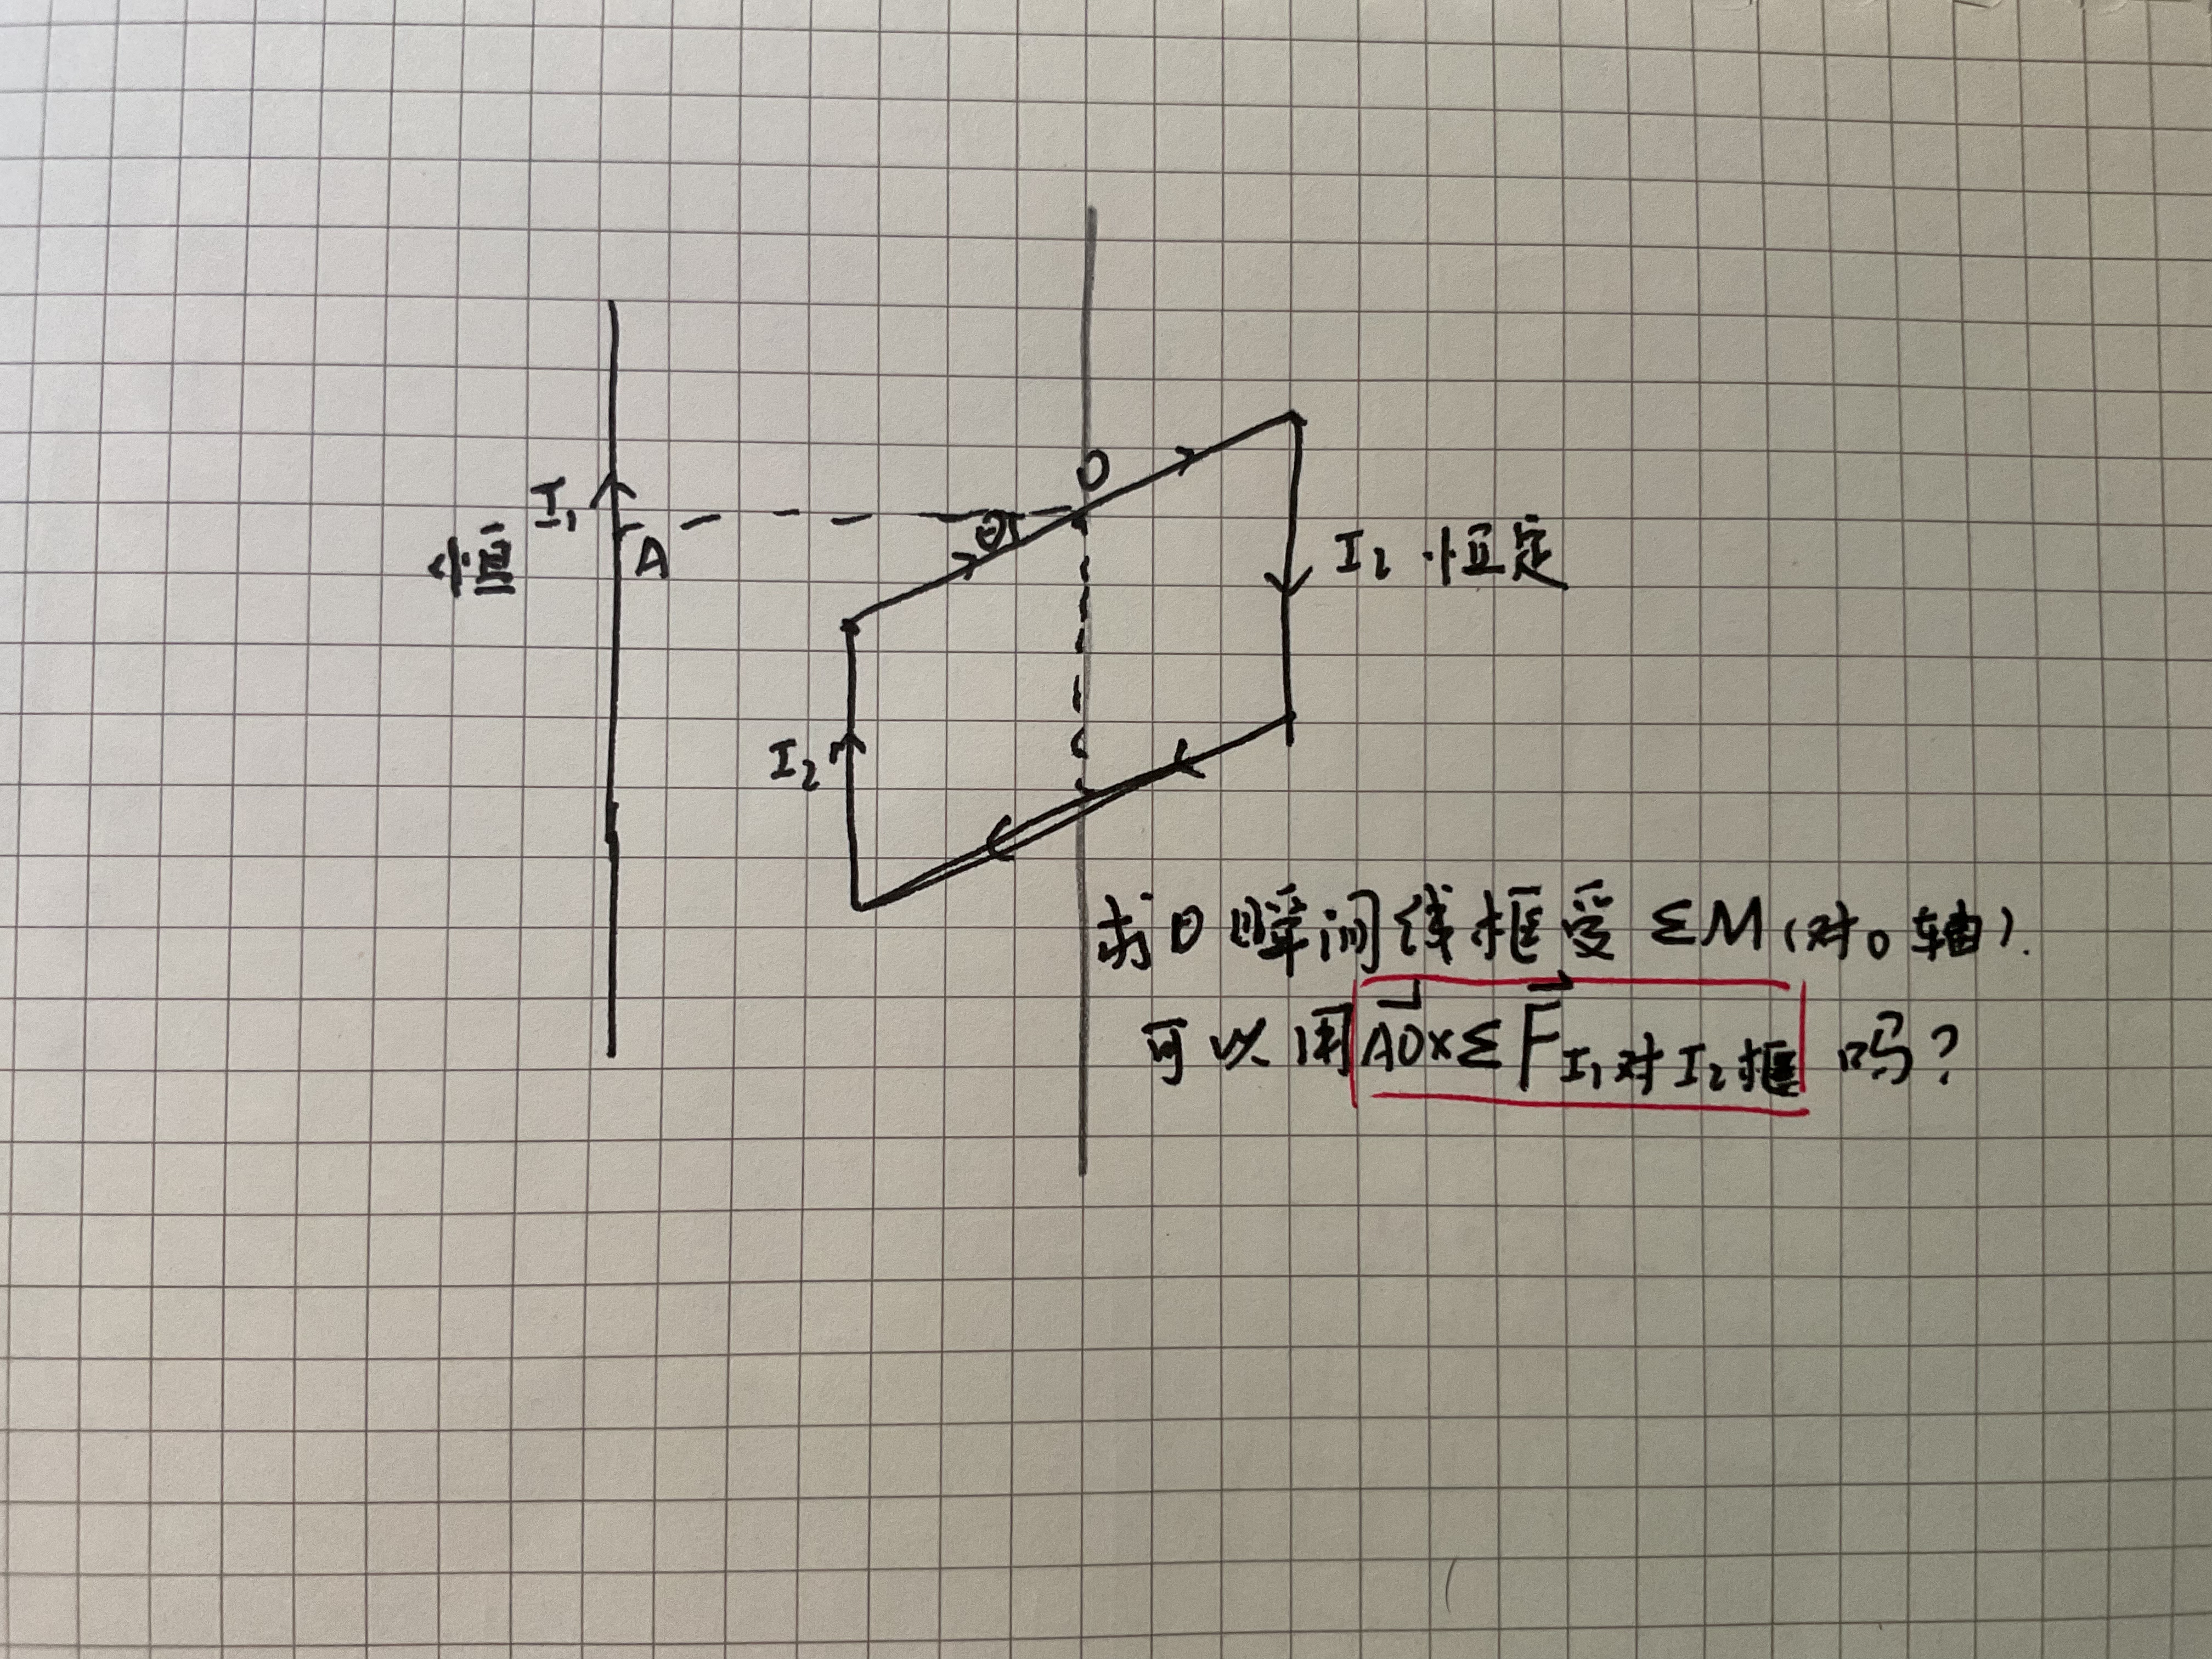 O
I₁
θ
恒
A
I₂ 恒定
I₂
求θ瞬间线框受 ΣM(对O轴).
可以用 AO⃗×ΣF⃗ I₁对I₂框 吗?